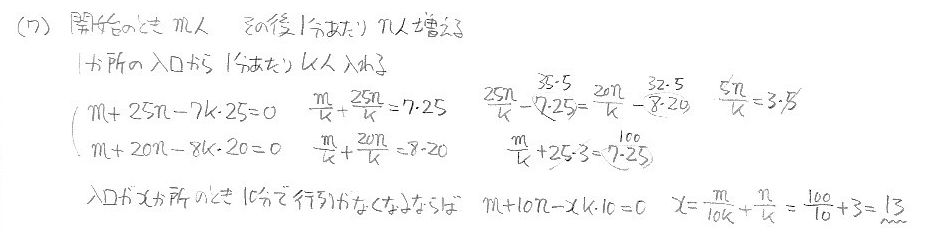 (7) 開始のとき m人 その後1分あたり n人増える
1か所の入口から 1分あたり k人 入れる
m+25n-7k·25=0 m/k+25n/k=7·25 25n/k-7·25=20n/k-8·20 35·5 32·5 5n/k=3·5
m+20n-8k·20=0 m/k+20n/k=8·20 m/k+25·3=7·25 100
入口がxか所のとき 10分で行列がなくなるならば m+10n-xk·10=0 x=m/10k+n/k=100/10+3=13